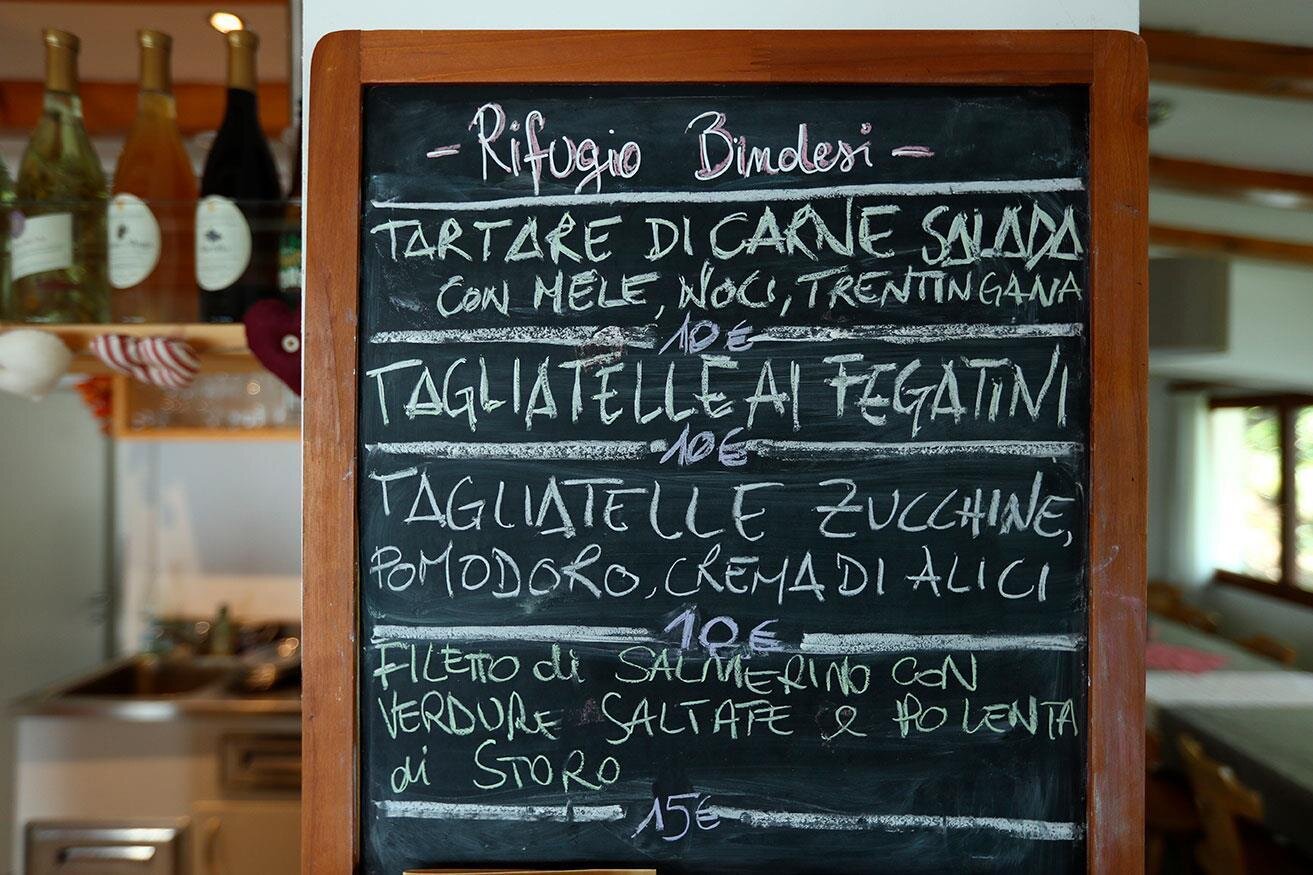 - Rifugio Bindesi -
TARTARE DI CARNE SALADA
CON MELE, NOCI, TRENTINGANA
10€
TAGLIATELLE AI FEGATINI
10€
TAGLIATELLE ZUCCHINE,
POMODORO, CREMA DI ALICI
10€
FILETTO di SALMERINO CON
VERDURE SALTATE e POLENTA
di STORO
15€